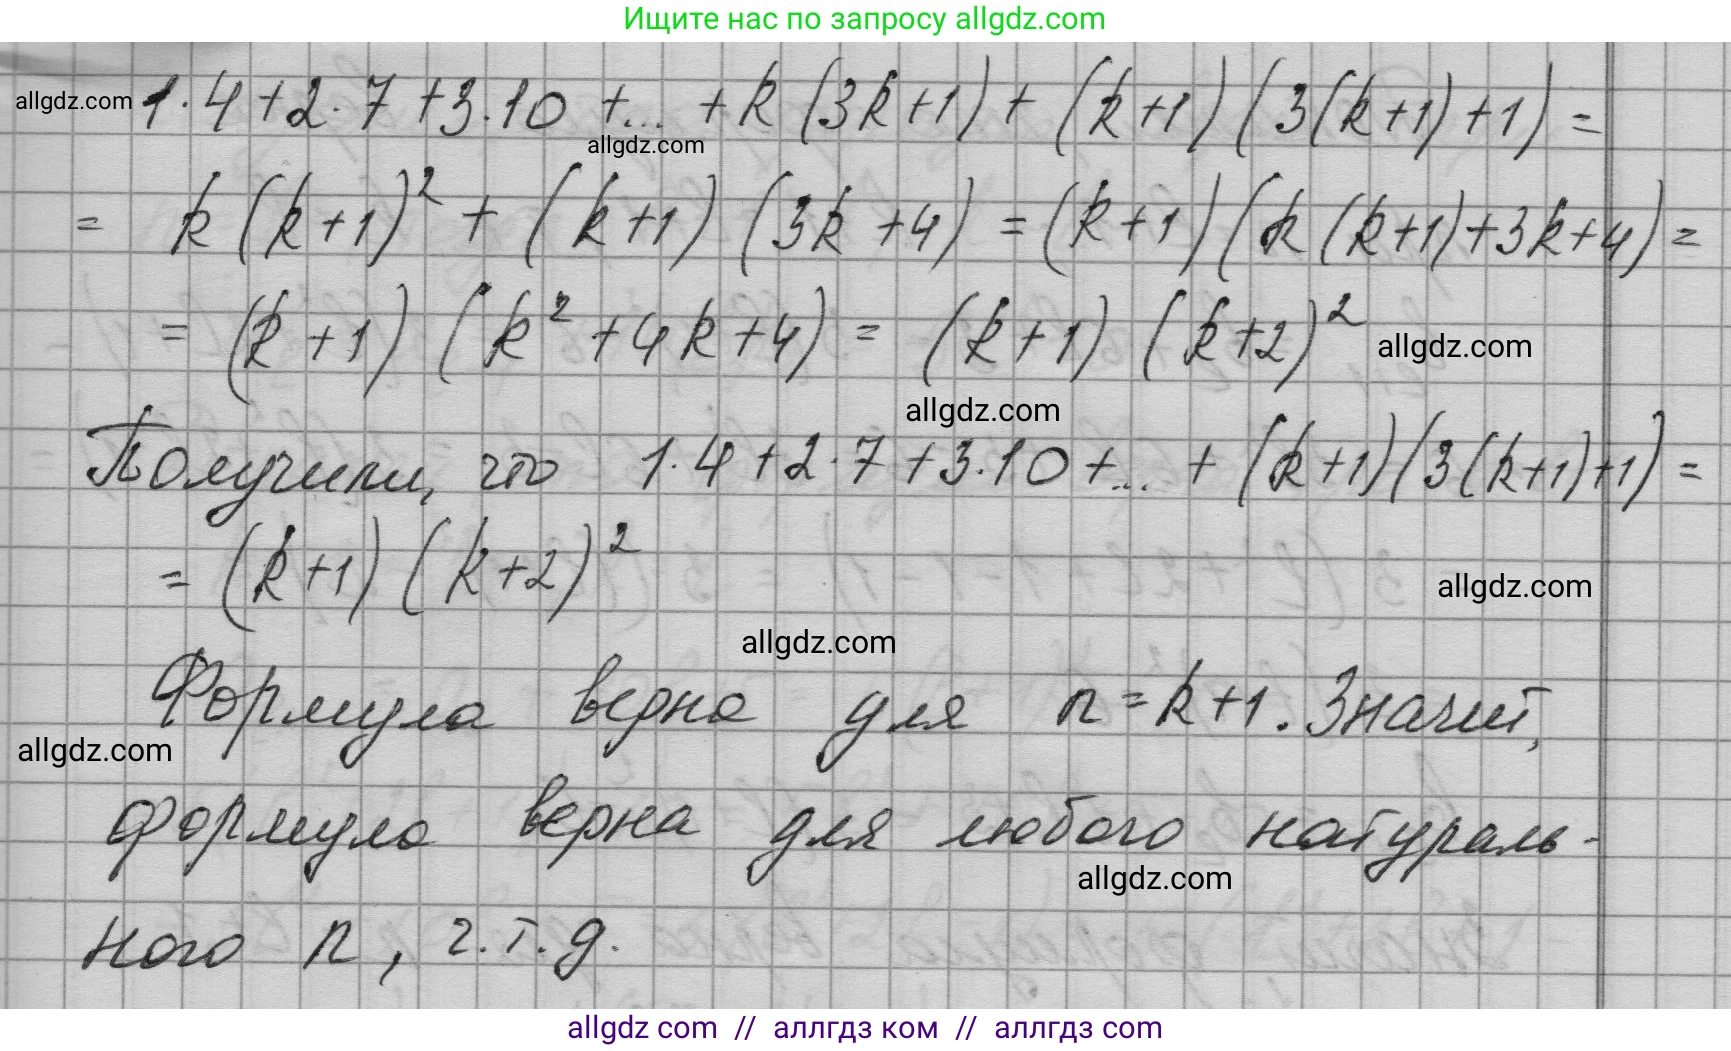 Ищите нас по запросу allgdz.com
allgdz.com 1·4+2·7+3·10+...+k(3k+1)+(k+1)(3(k+1)+1)=
allgdz.com
= k(k+1)²+(k+1)(3k+4)=(k+1)(k(k+1)+3k+4)=
= (k+1)(k²+4k+4)=(k+1)(k+2)² allgdz.com
allgdz.com
Получили, что 1·4+2·7+3·10+...+(k+1)(3(k+1)+1)=
= (k+1)(k+2)²
allgdz.com
allgdz.com
Формула верна для n=k+1. Значит,
allgdz.com
формула верна для любого натураль-
allgdz.com
ного n, ч.т.д.
allgdz com // аллгдз ком // аллгдз com